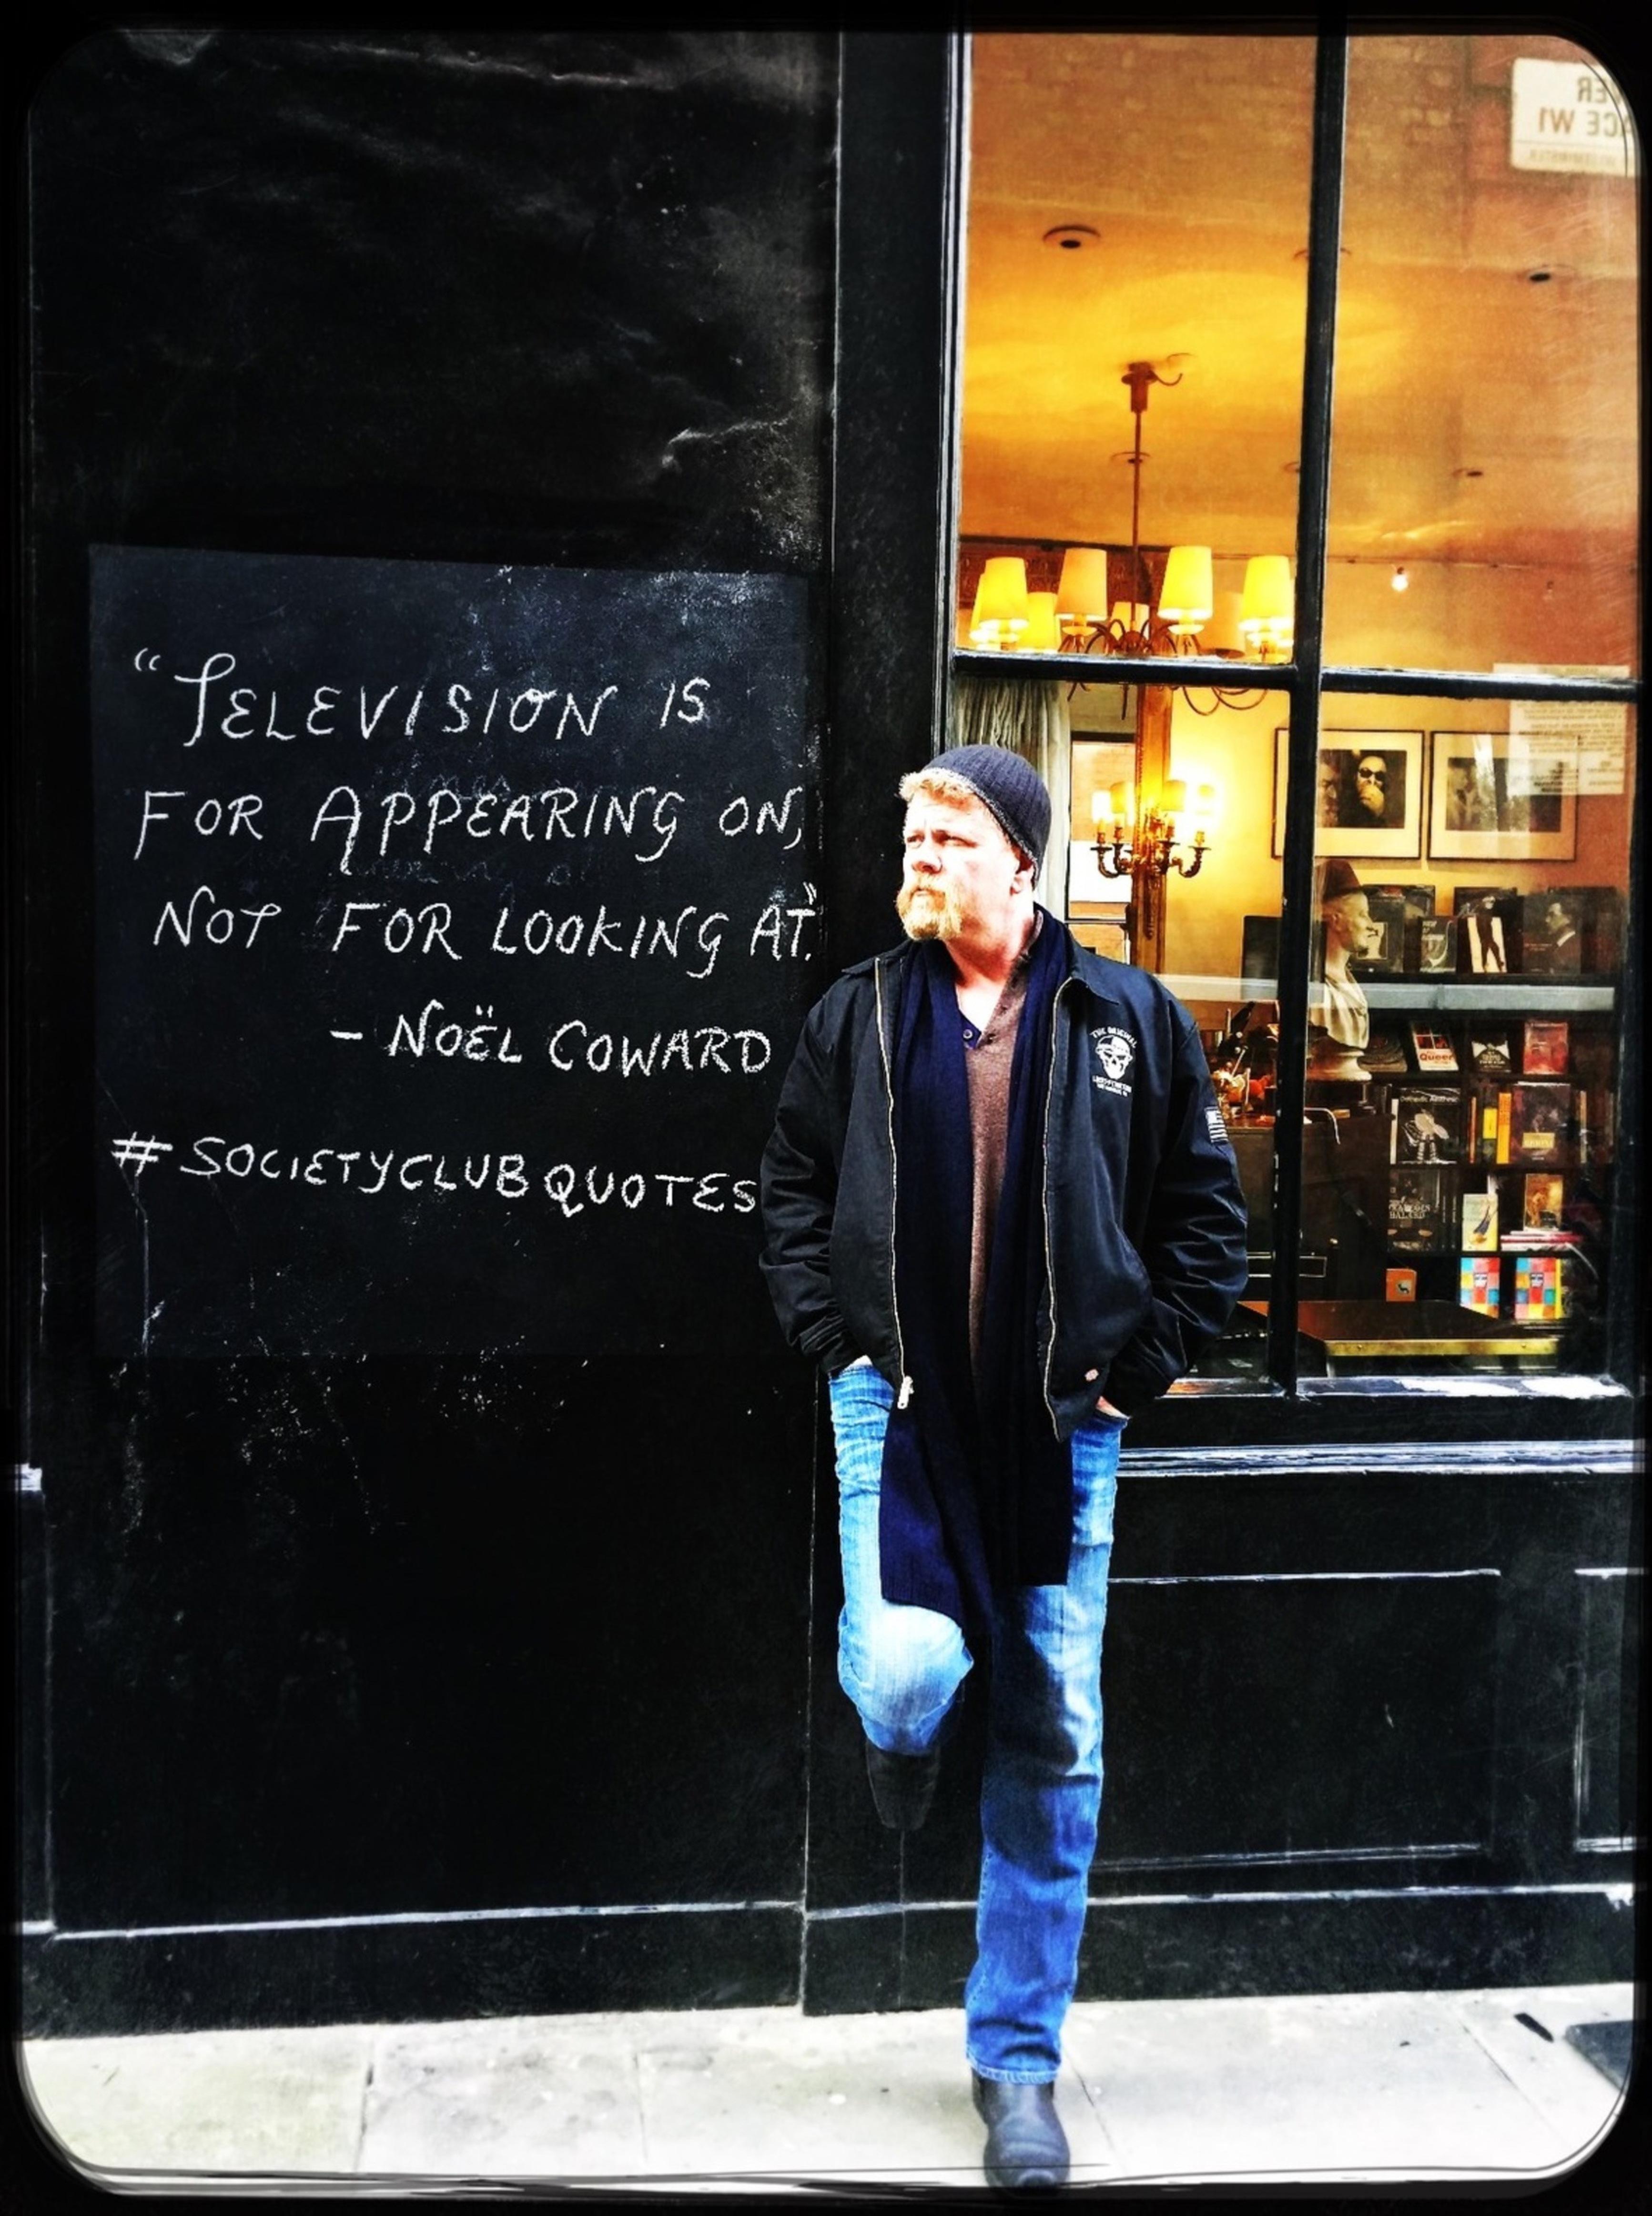 “TELEVISION IS
FOR APPEARING ON,
NOT FOR LOOKING AT.”
– NOËL COWARD
#SOCIETYCLUBQUOTES
W1
THE ORIGINAL
Queer